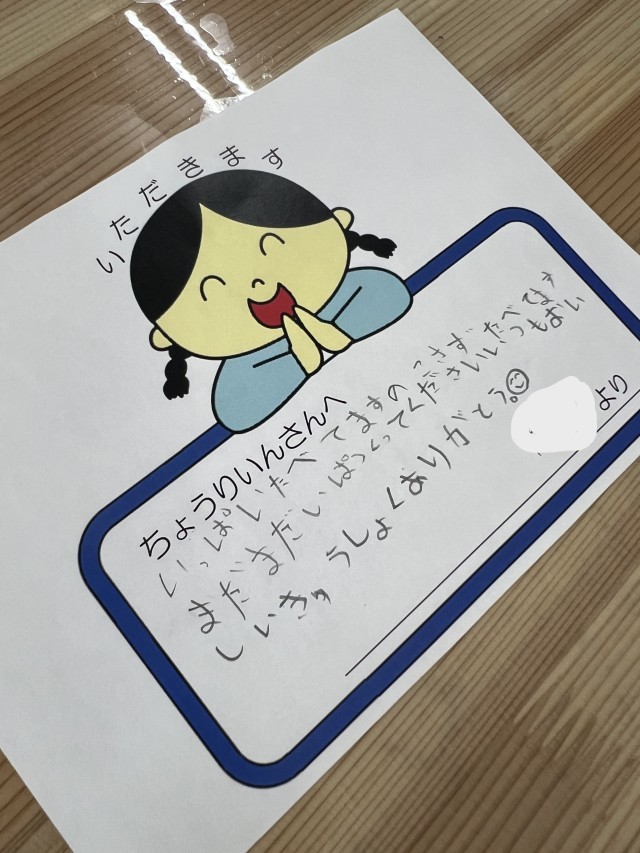 いただきます
ちょうりいんさんへ
いっぱいたべてますのこさずたべてます
まだまだいぱつくってくださいいつもおい
しいきゅうしょくありがとう。
より